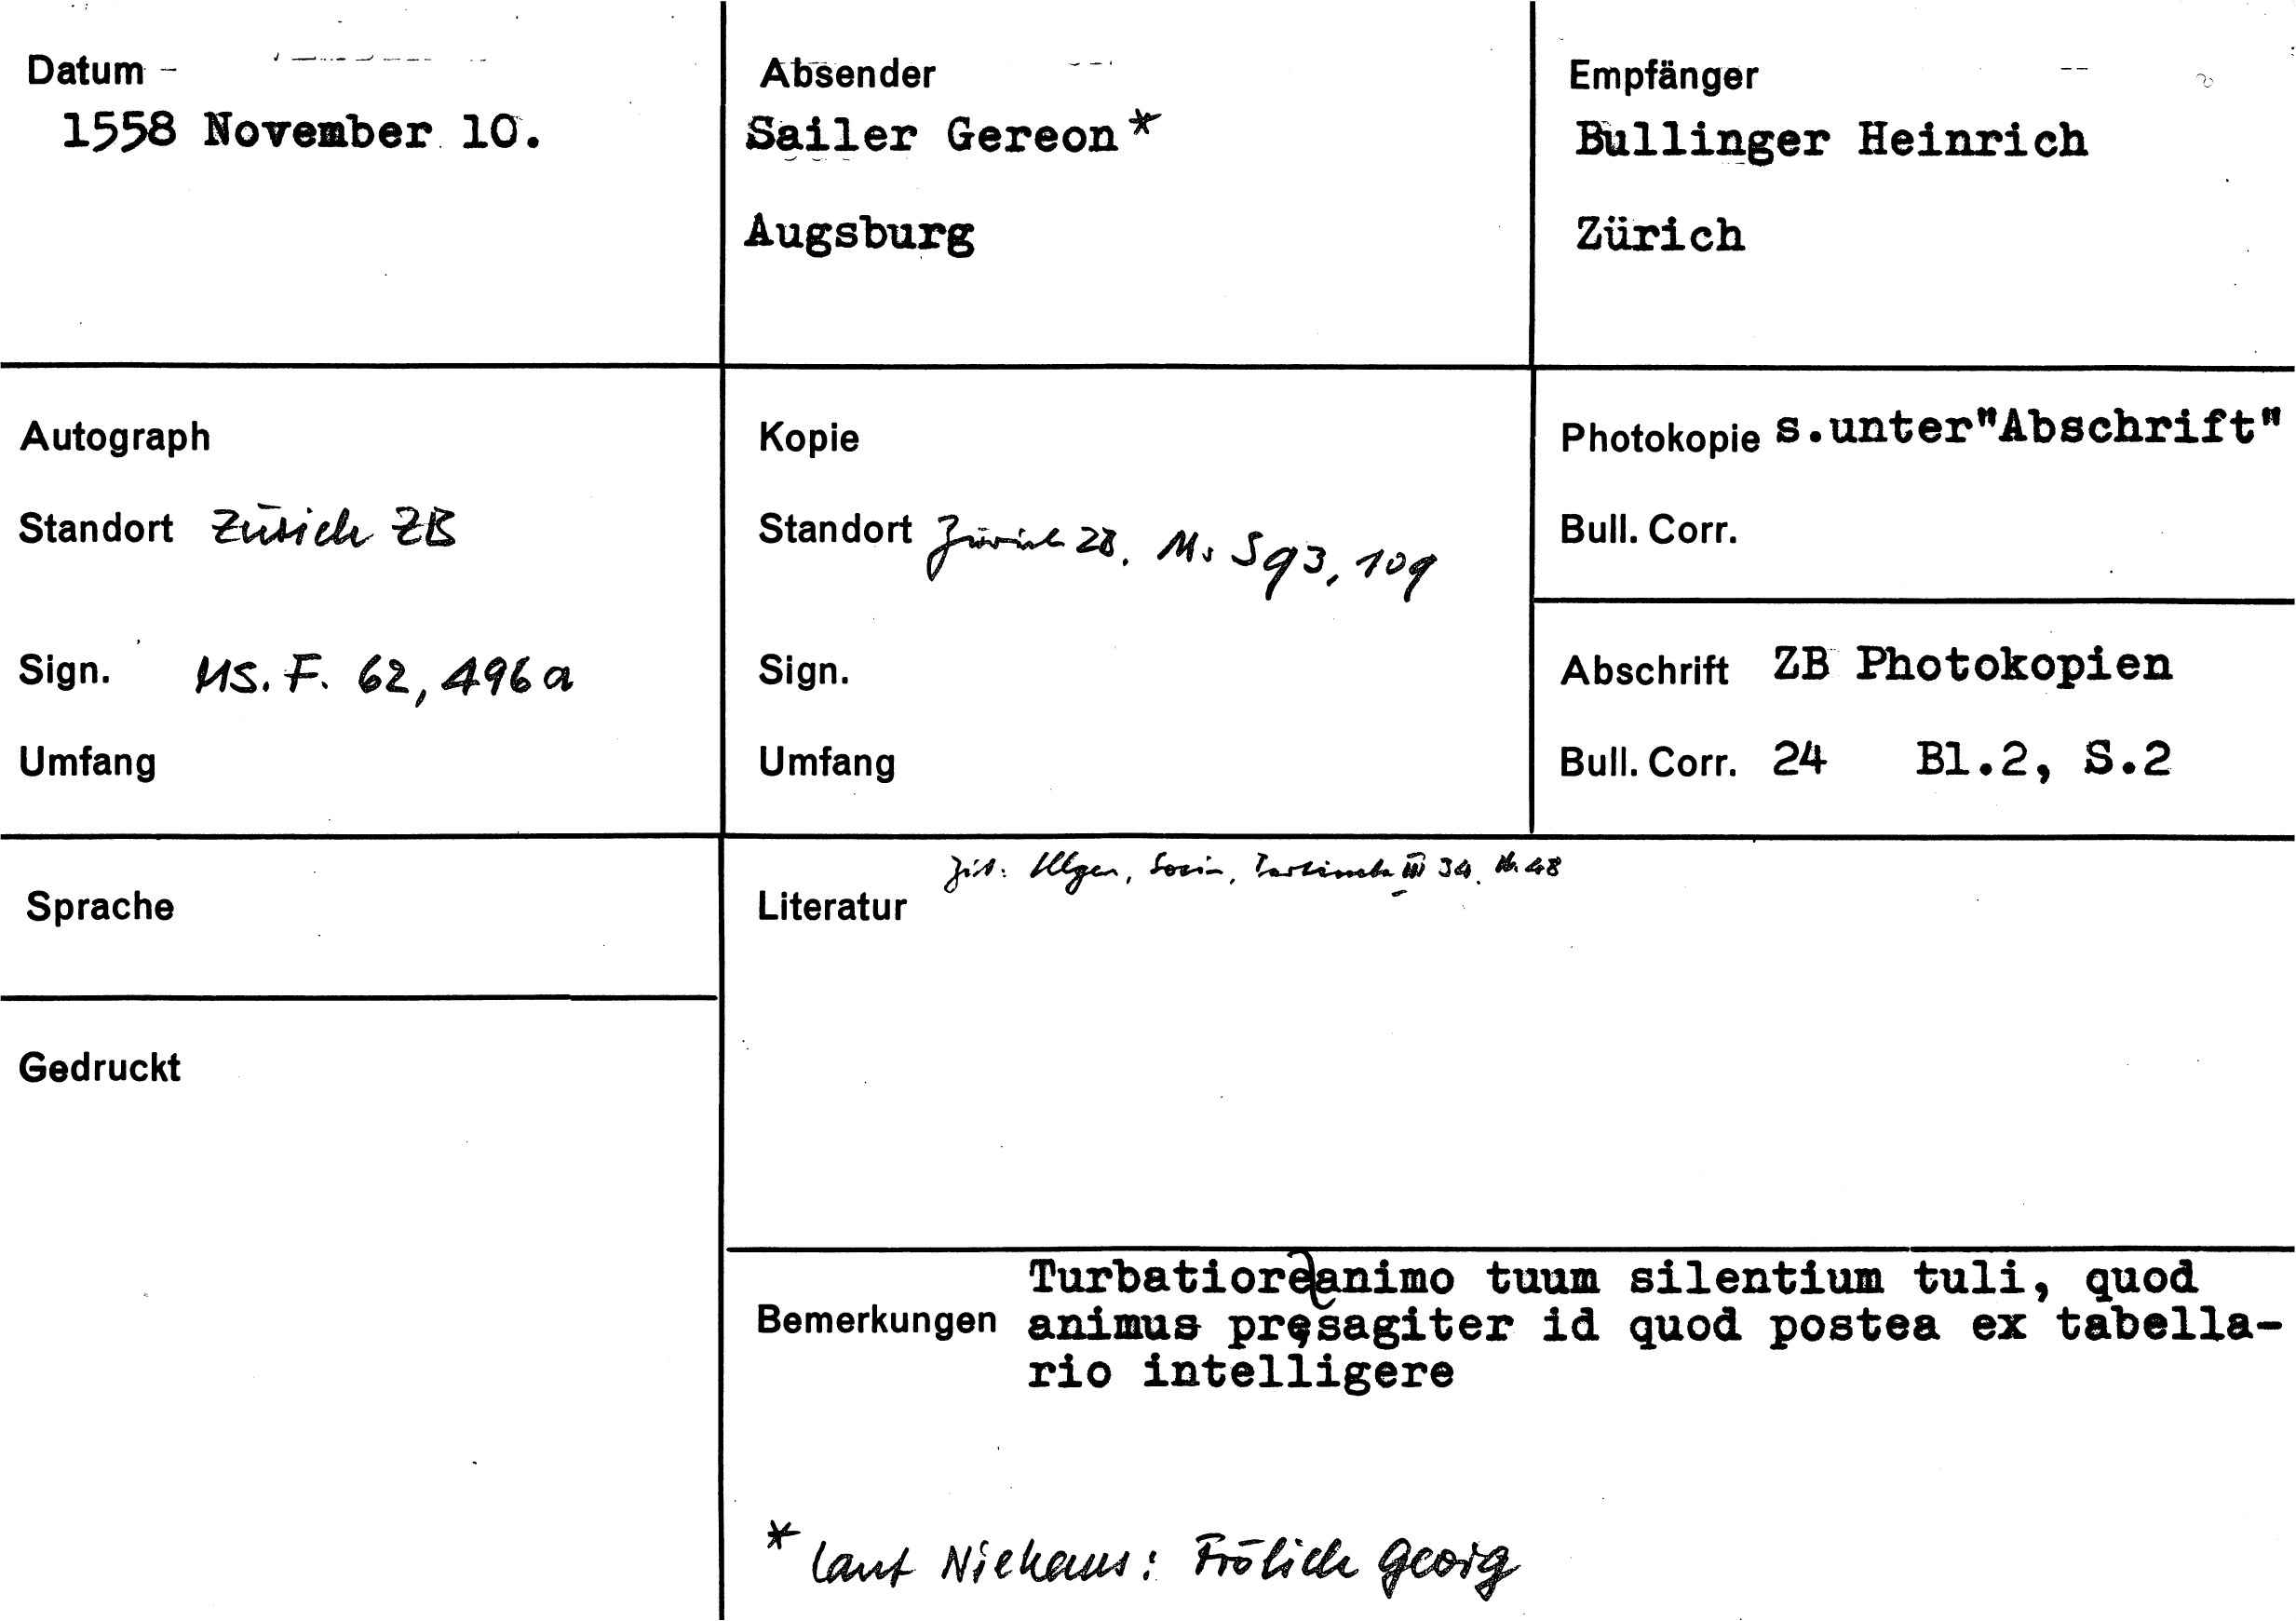 Datum
1558 November 10.
Absender
Sailer Gereon*
Augsburg
Empfänger
Bullinger Heinrich
Zürich
Autograph
Standort Zürich ZB
Sign. MS. F. 62, 496a
Umfang
Kopie
Standort Zürich ZB. Ms S 93, 109
Sign.
Umfang
Photokopie s.unter"Abschrift"
Bull. Corr.
Abschrift ZB Photokopien
Bull. Corr. 24 Bl.2, S.2
Sprache
Gedruckt
Zit: Illgen, Socin, III 34. Nr. 48
Literatur
Turbatiore animo tuum silentium tuli, quod
Bemerkungen animus pręsagiter id quod postea ex tabella-
rio intelligere
* laut Niehaus: Frölich Georg